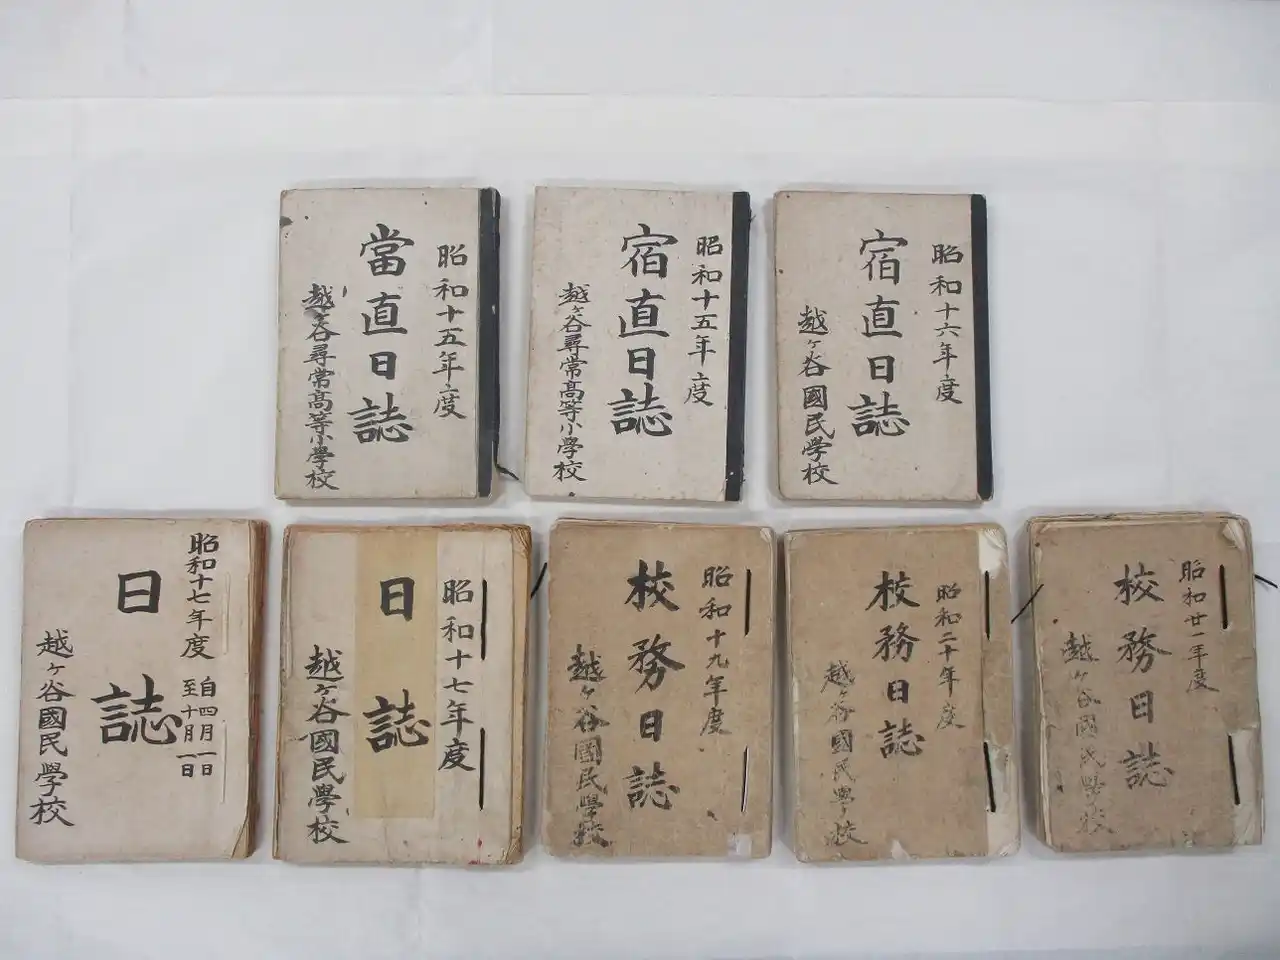 昭和十五年度
當直日誌
越ヶ谷尋常高等小學校
昭和十五年度
宿直日誌
越ヶ谷尋常高等小學校
昭和十六年度
宿直日誌
越ヶ谷國民學校
昭和十七年度
自四月一日
至十月一日
日誌
越ヶ谷國民學校
昭和十七年度
日誌
越ヶ谷國民學校
昭和十九年度
校務日誌
越ヶ谷國民學校
昭和二十年度
校務日誌
越ヶ谷國民學校
昭和廿一年度
校務日誌
越ヶ谷國民學校